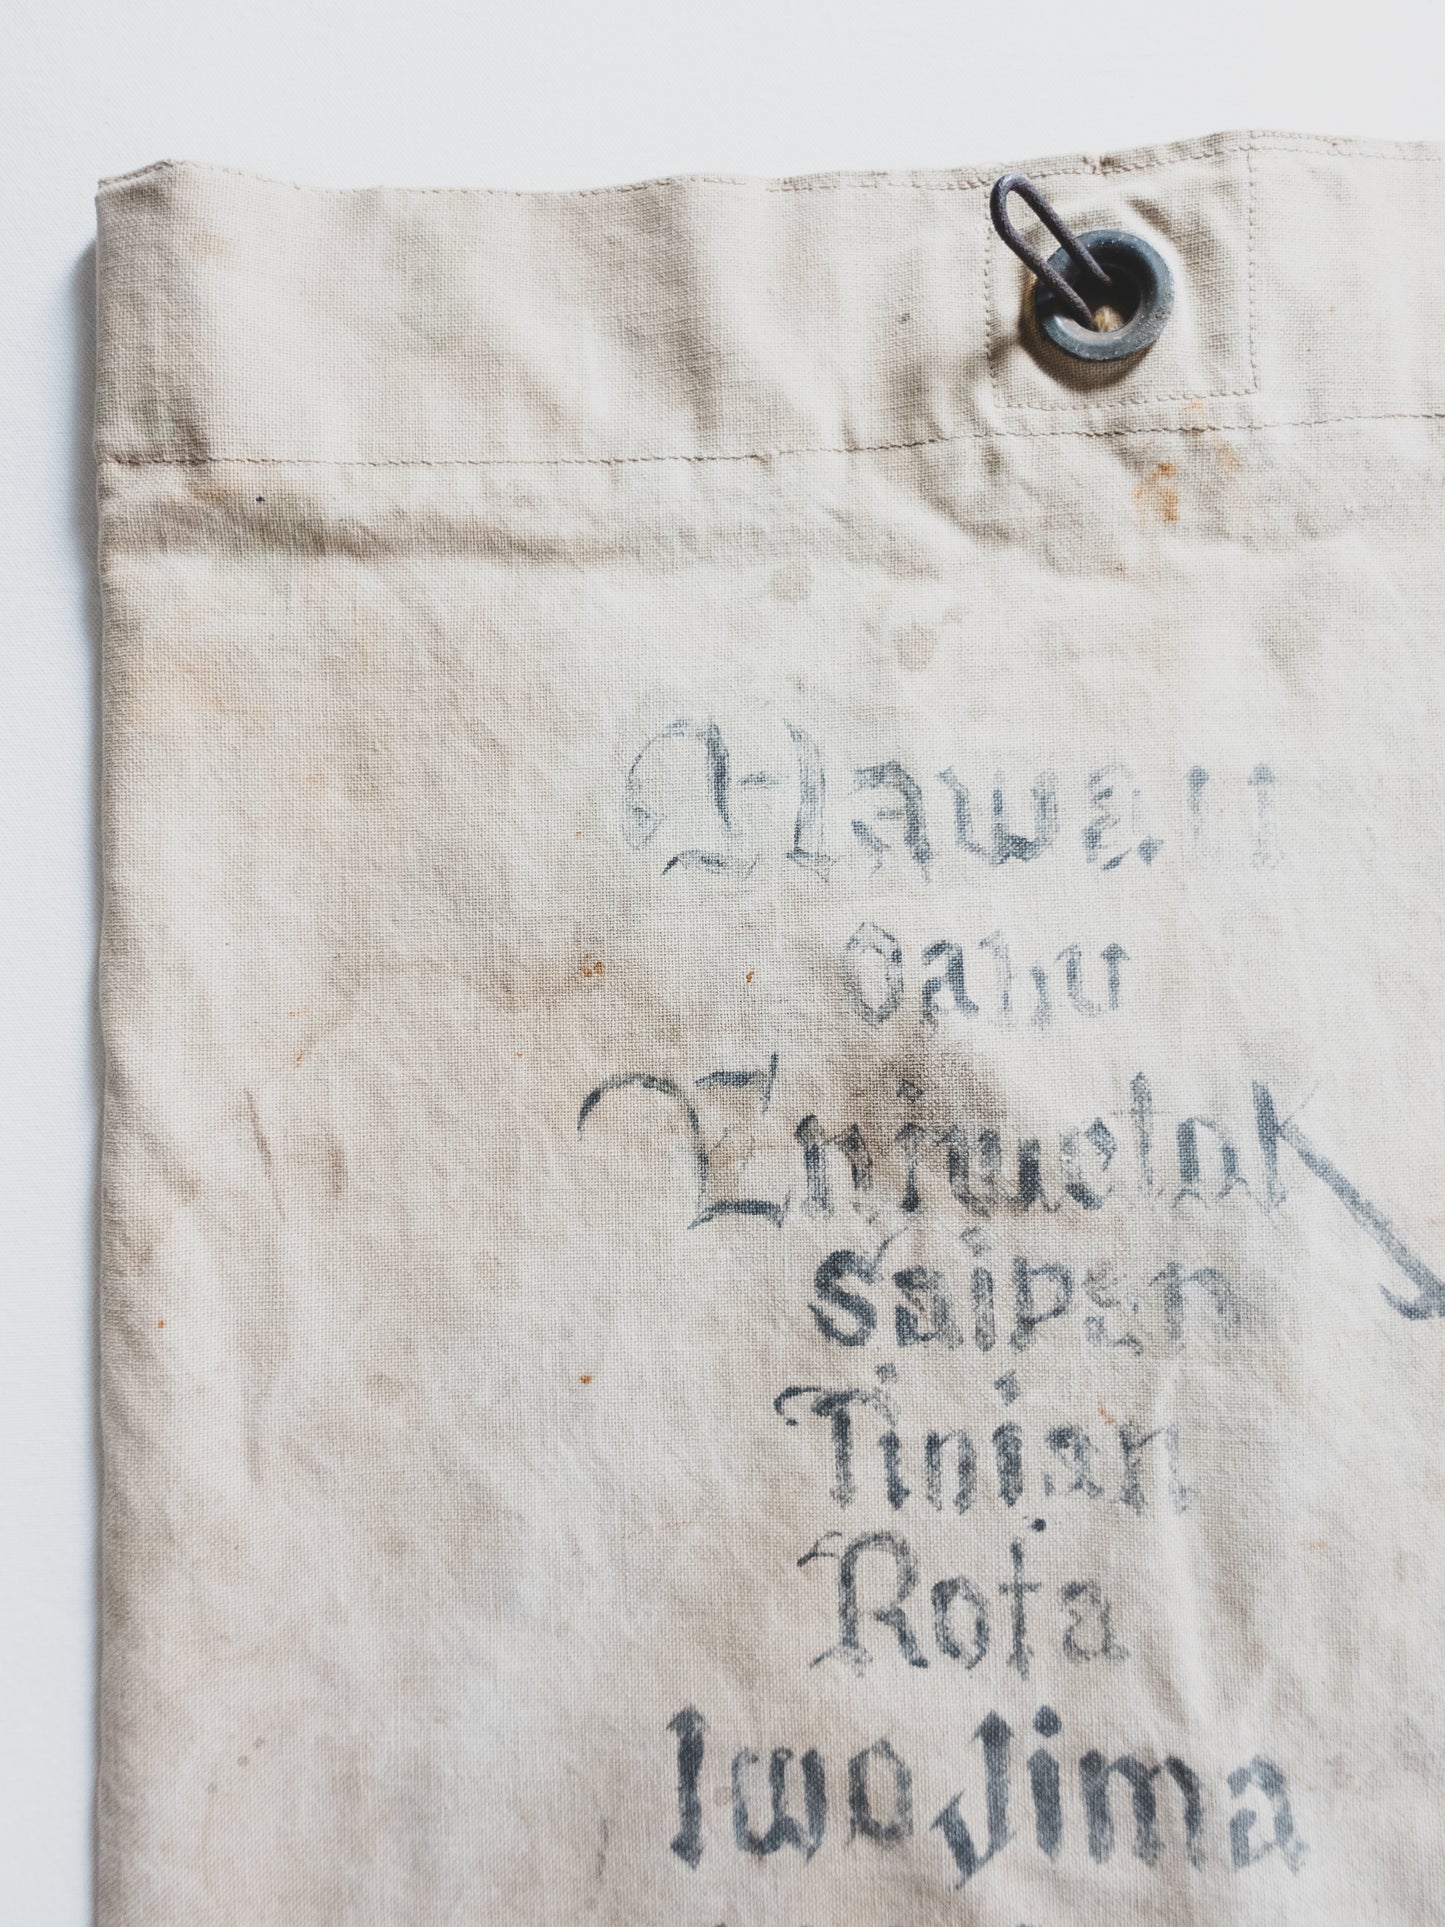 Hawaii
Oahu
Eniwetok
Saipen
Tinian
Rota
Iwo Jima